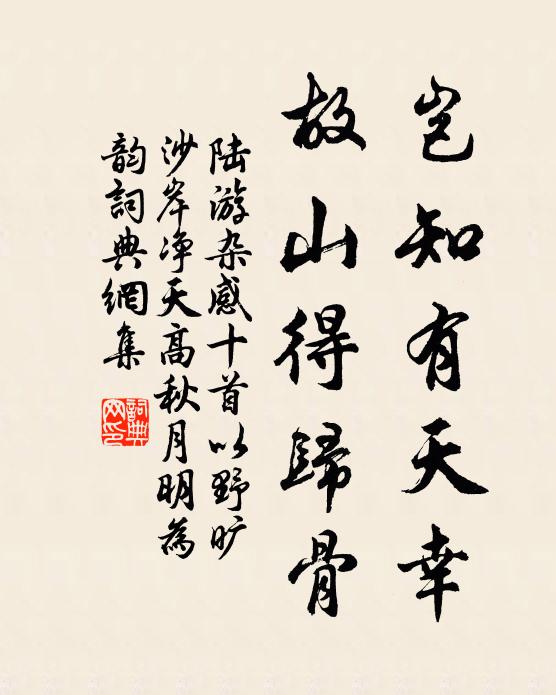 岂知有天幸
故山得歸骨
陆游杂感十首以野旷
沙岸净天高秋月明為
韵詞典網集
詞典网印